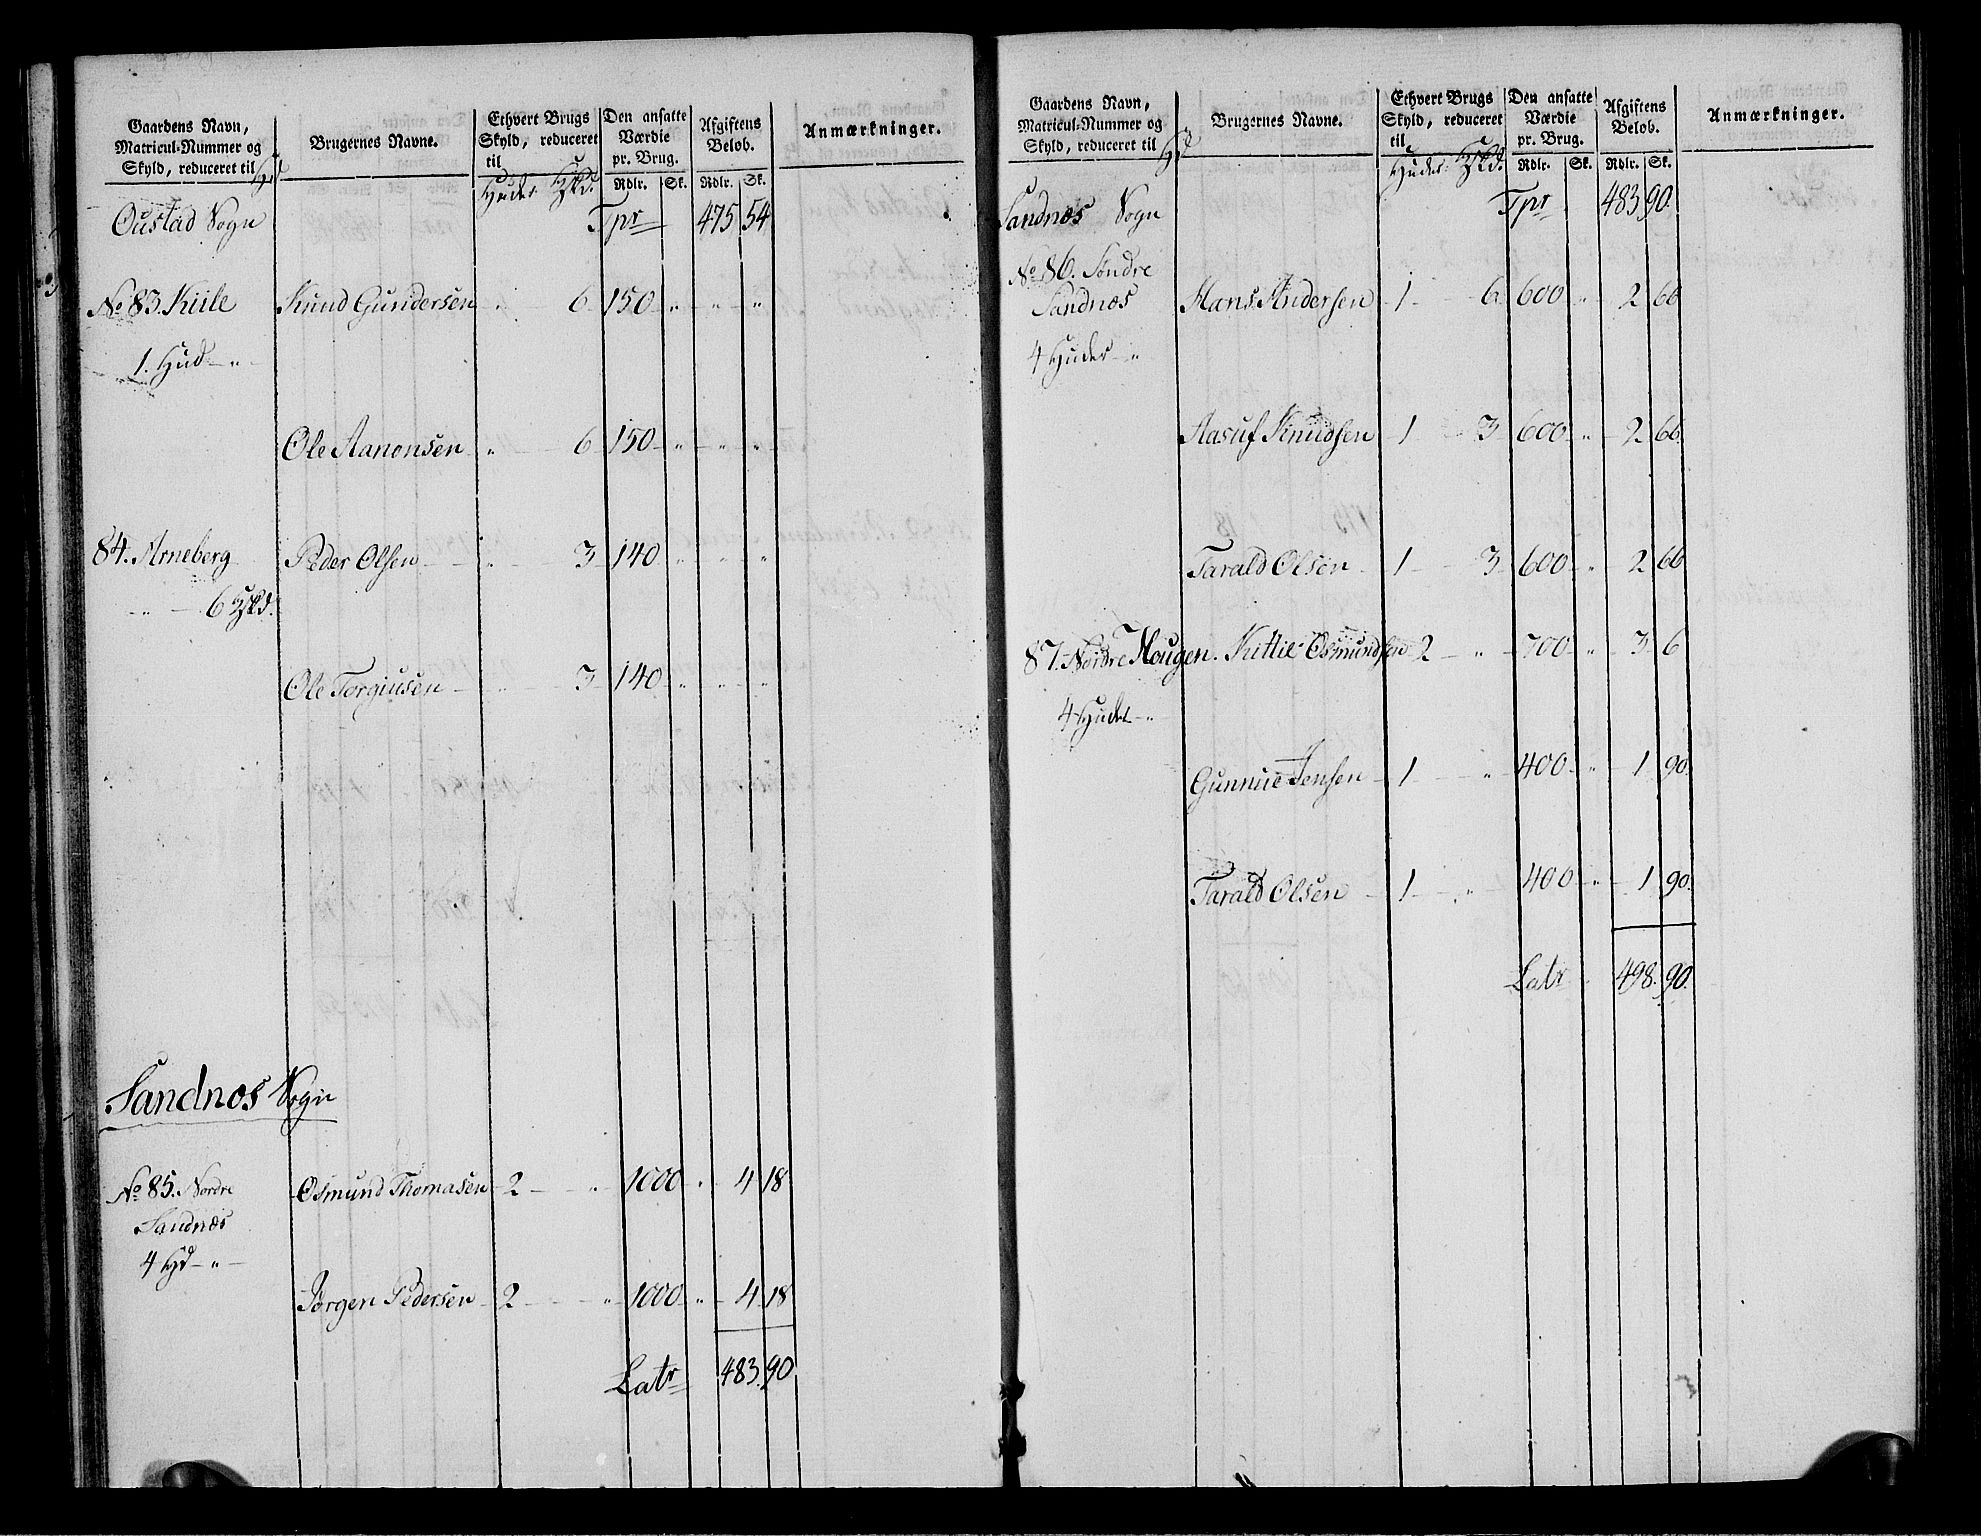 Gaardens Navn, Matricul-Nummer og Skyld, reduceret til Hd
Brugernes Navne.
Ethvert Brugs Skyld, reduceret til Huder
Den ansatte Værdie pr. Brug. Rdlr. Sk.
Afgiftens Belob. Rdlr. Sk.
Anmærkninger.
Oustad Sogn Tpr 475 54
No 83. Kiile Knud Gundersen " 6 150 " " "
1. Hud "
Ole Aanonsen " 6 150 " " "
84. Arneberg Peder Olsen " 3 140 " " "
" 6
Ole Torgiusen " 3 140 " " "
Sandnæs Sogn
No 85. Nordre Osmund Thomasen 2 " 1000 " 4 18
Sandnæs
4 Hd "
Jørgen Pedersen 2 " 1000 " 4 18
Latr 483. 90
Gaardens Navn, Matricul-Nummer og Skyld, reduceret til Hd
Brugernes Navne.
Ethvert Brugs Skyld, reduceret til Huder
Den ansatte Værdie pr. Brug. Rdlr. Sk.
Afgiftens Belob. Rdlr. Sk.
Anmærkninger.
Sandnæs Sogn Tpr 483 90.
No 86. Søndre
Sandnæs Hans Andersen 1 6 600 " 2 66
4 Huder "
Aasuf Knudsen 1 3 600 " 2 66.
Tarald Olsen 1 3 600 " 2 66
87. Nordre Hougen. Kittil Osmundsen 2 " 700 " 3 6
4 Huder "
Gunnue Jensen 1 " 400 " 1 90.
Tarald Olsen 1 " 400 " 1 90.
Latr 498. 90.